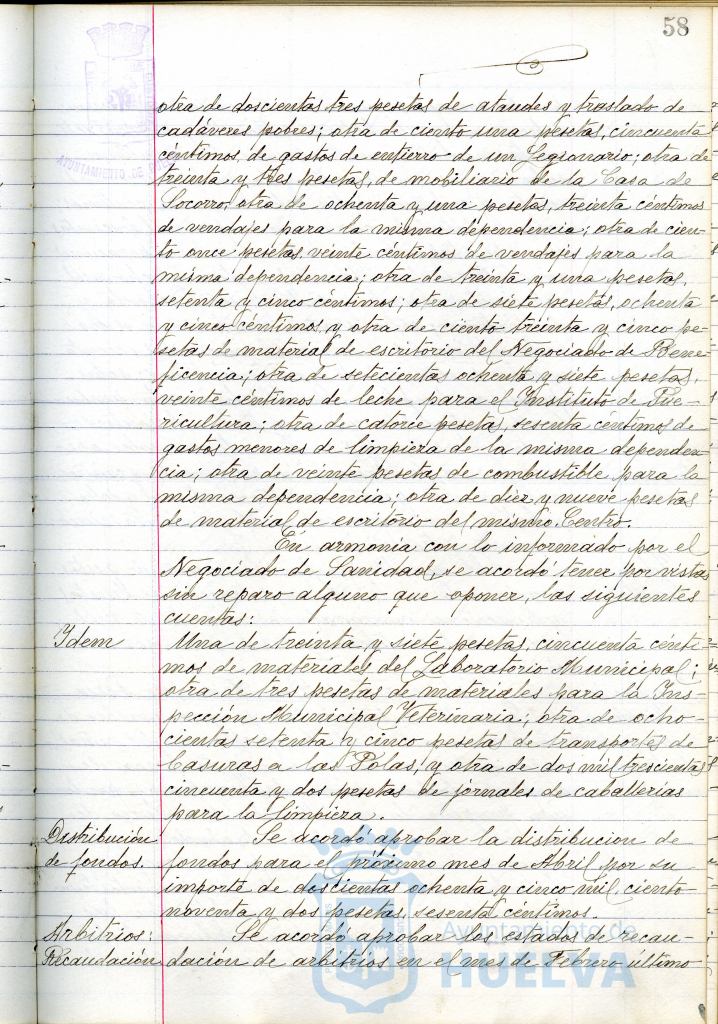 58
otra de doscientas tres pesetas de ataudes y traslado de
cadáveres pobres; otra de ciento una pesetas, cincuenta
céntimos, de gastos de entierro de un Legionario; otra de
treinta y tres pesetas, de mobiliario de la Casa de
Socorro, otra de ochenta y una pesetas, treinta céntimos
de vendajes para la misma dependencia; otra de cien-
to once pesetas, veinte céntimos de vendajes para la
misma dependencia; otra de treinta y una pesetas,
setenta y cinco céntimos; otra de siete pesetas, ochenta
y cinco céntimos, y otra de ciento treinta y cinco pe-
setas de material de escritorio del Negociado de Bene-
ficencia; otra de setecientas ochenta y siete pesetas,
veinte céntimos de leche para el Instituto de Pue-
ricultura; otra de catorce pesetas, sesenta céntimos de
gastos menores de limpieza de la misma dependen-
cia; otra de veinte pesetas de combustible para la
misma dependencia; otra de diez y nueve pesetas
de material de escritorio del mismo Centro.
En armonía con lo informado por el
Negociado de Sanidad, se acordó tener por vistas
sin reparo alguno que oponer, las siguientes
cuentas:
Idem Una de treinta y siete pesetas, cincuenta cénti-
mos de materiales del Laboratorio Municipal;
otra de tres pesetas de materiales para la Ins-
pección Municipal Veterinaria; otra de ocho-
cientas setenta y cinco pesetas de transportes de
basuras a las Polas, y otra de dos mil trescientas
cincuenta y dos pesetas de jornales de caballerias
para la limpieza.
Distribución Se acordó aprobar la distribucion de
de fondos. fondos para el próximo mes de Abril por su
importe de doscientas ochenta y cinco mil ciento
noventa y dos pesetas, sesenta céntimos.
Arbitrios: Se acordó aprobar los estados de recau-
Recaudación dación de arbitrios en el mes de Febrero último
Ayuntamiento de
HUELVA